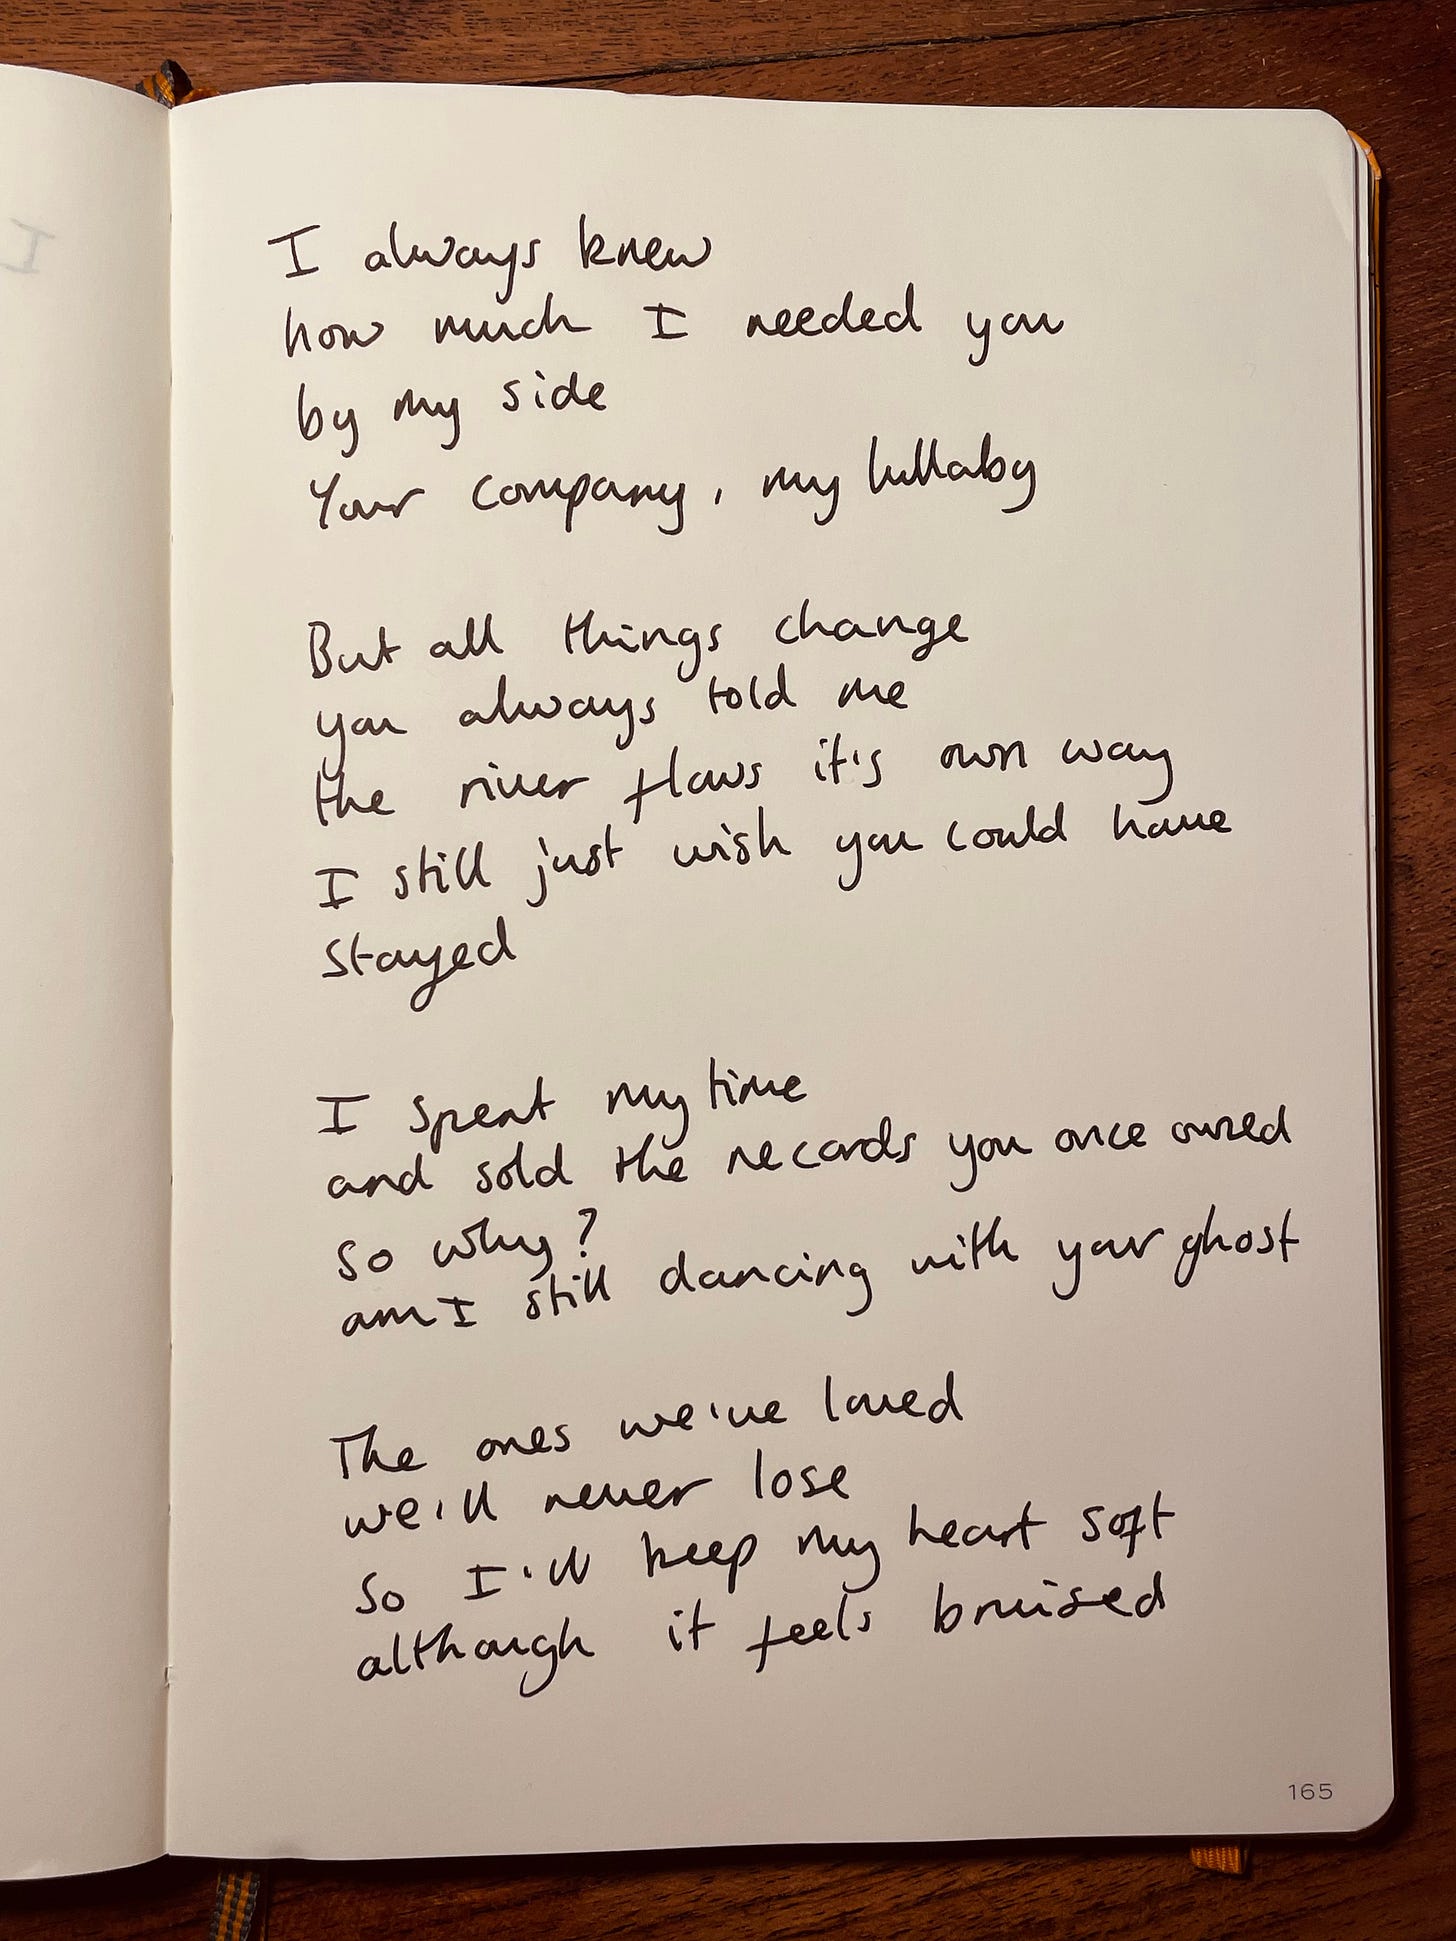 I
I always knew
how much I needed you
by my side
Your company, my lullaby
But all things change
you always told me
the river flows it's own way
I still just wish you could have
stayed
I spent my time
and sold the records you once owned
so why?
am I still dancing with your ghost
The ones we've loved
we'll never lose
So I'll keep my heart soft
although it feels bruised
165